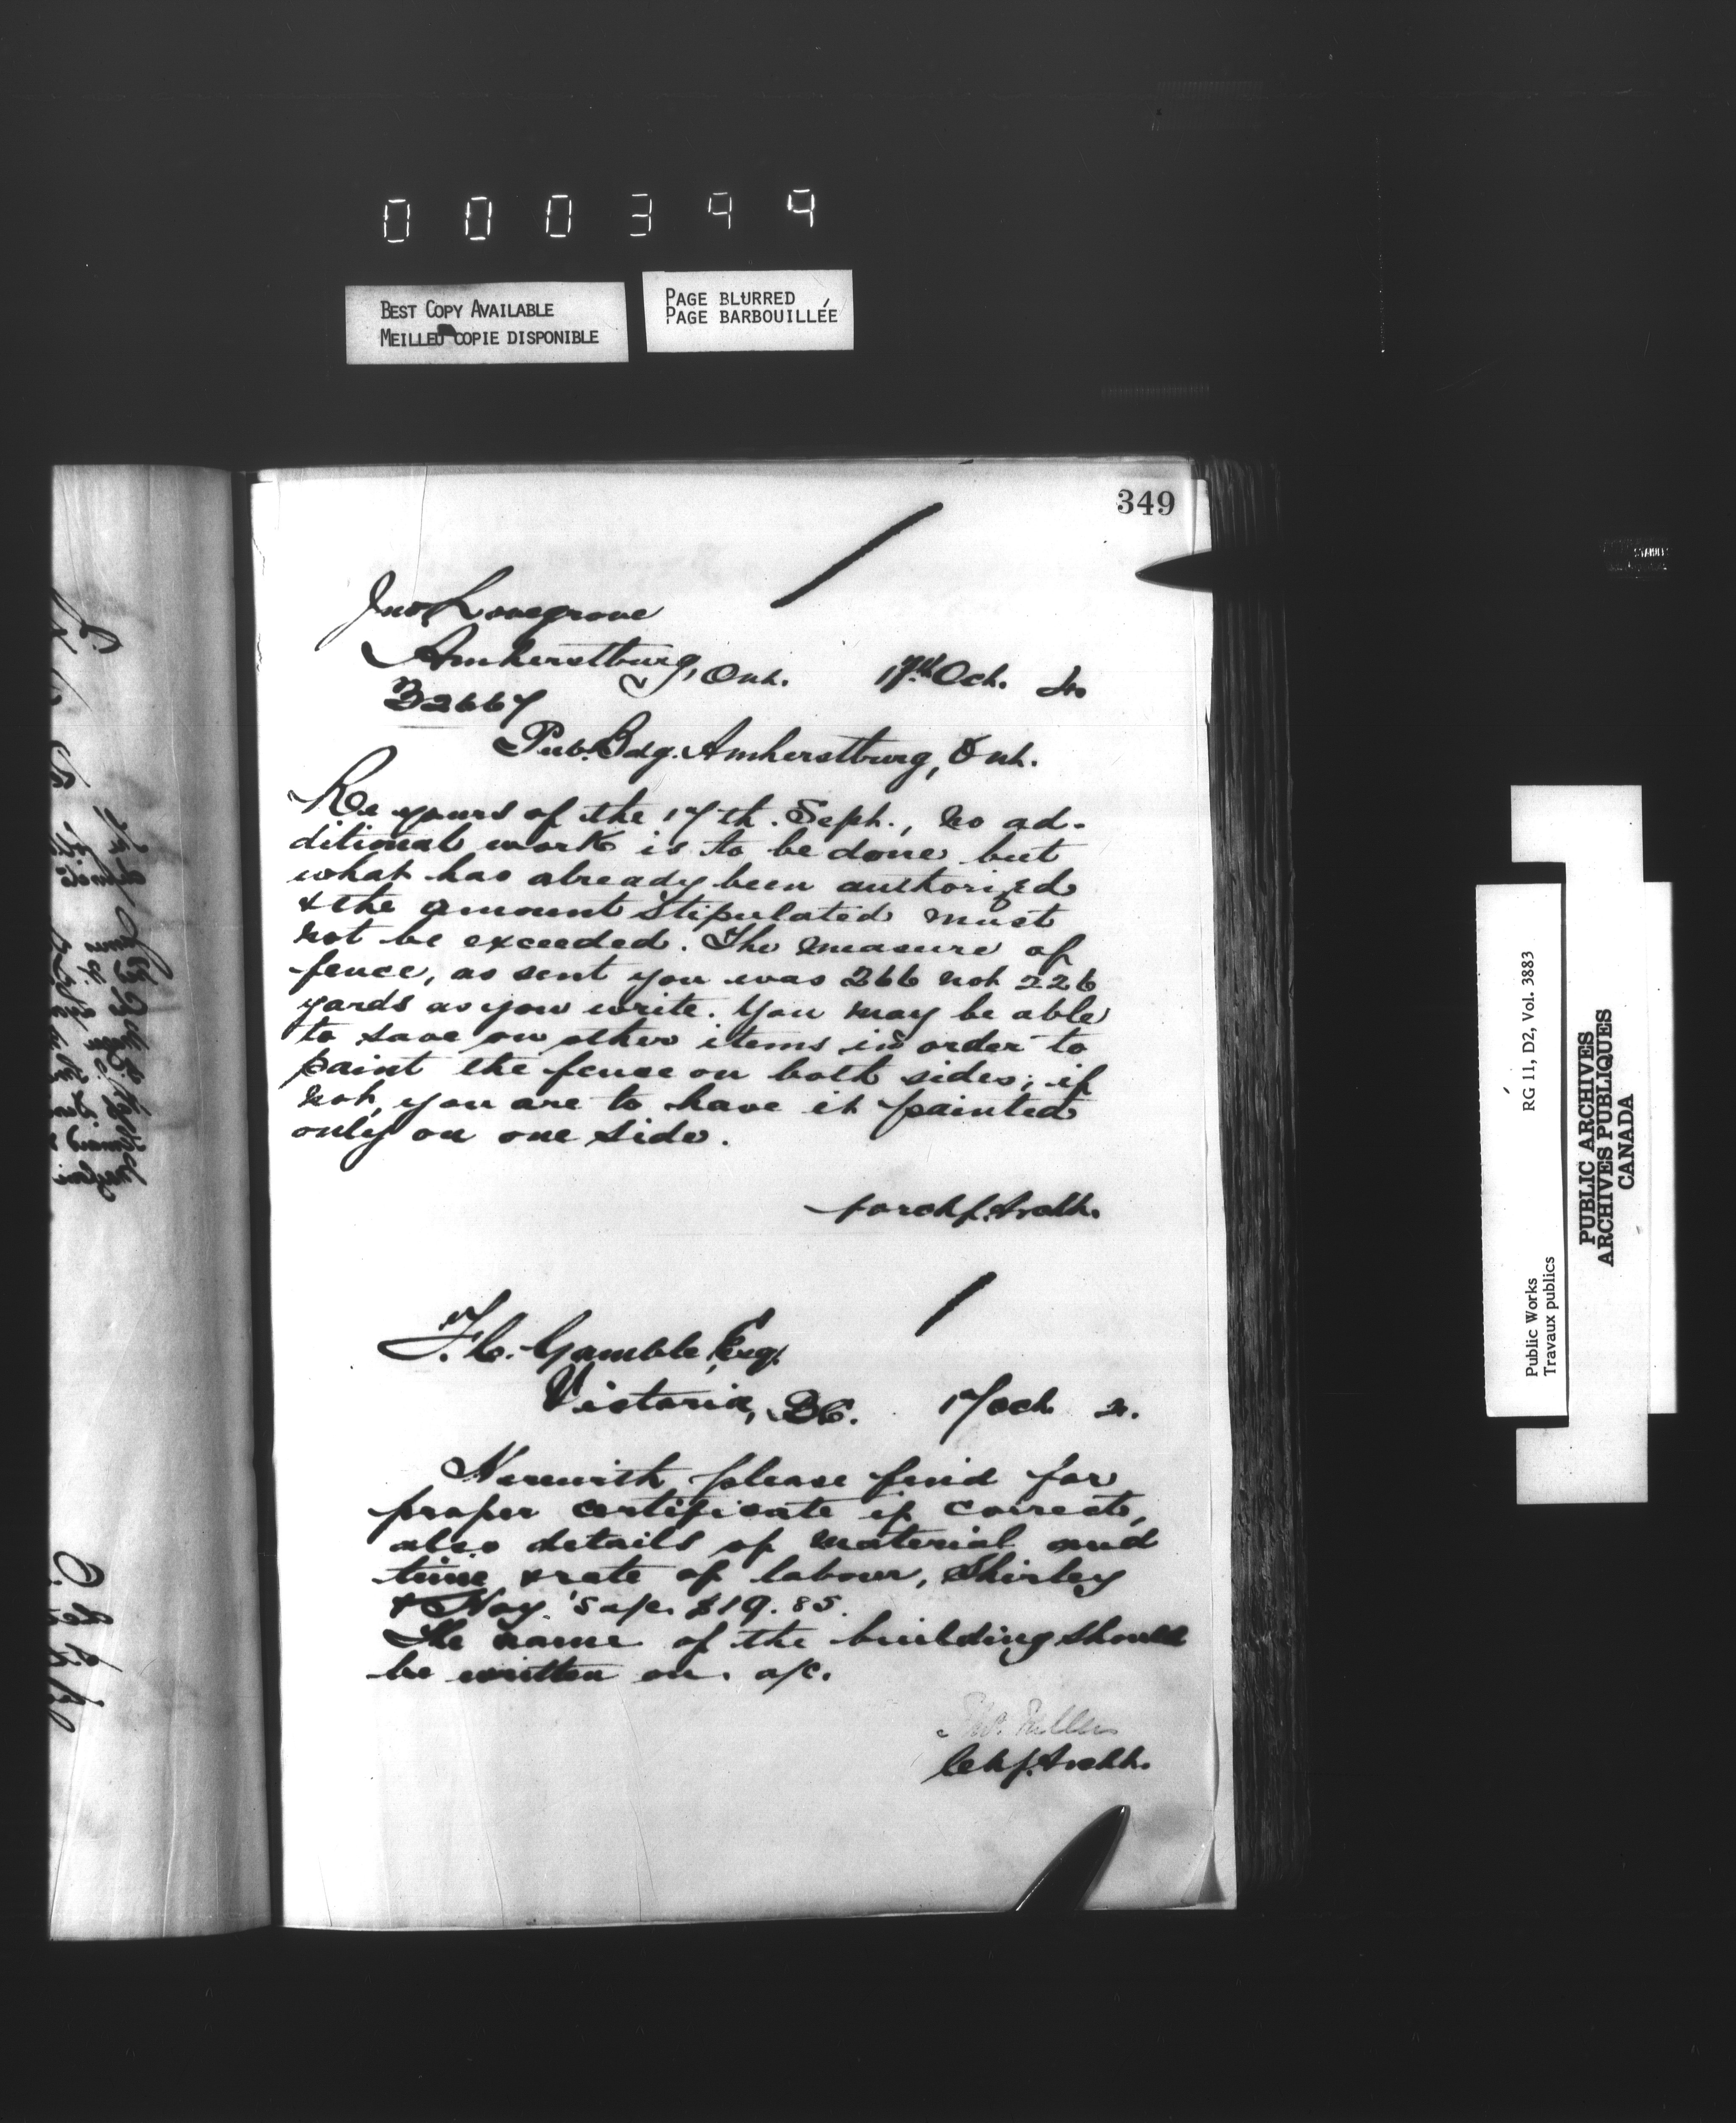 000344
BEST COPY AVAILABLE
MEILLEU COPIE DISPONIBLE
PAGE BLURRED
PAGE BARBOUILLÉE
349
Jno. Lovegrove
Amherstburg, Ont. 17th Oct.
32667
Pub. Bdg. Amherstburg, Ont.
Re yours of the 17th. Sept., no ad-
ditional work is to be done but
what has already been authorized
& the amount stipulated must
not be exceeded. The measure of
fence, as sent you was 266 not 226
yards as you write. You may be able
to save on other items in order to
paint the fence on both sides; if
not, you are to have it painted
only on one side.
for chf. Archt.
F. C. Gamble, Esq.
Victoria, B.C. 17 Oct.
Herewith please find for
proper certificate if correct,
also details of material and
time & rate of labour, Shirley
& Hoy's a/c. $19.85.
The name of the building should
be written on a/c.
Chf. Archt.
Public Works
Travaux publics
RG 11, D2, Vol. 3883
PUBLIC ARCHIVES
ARCHIVES PUBLIQUES
CANADA